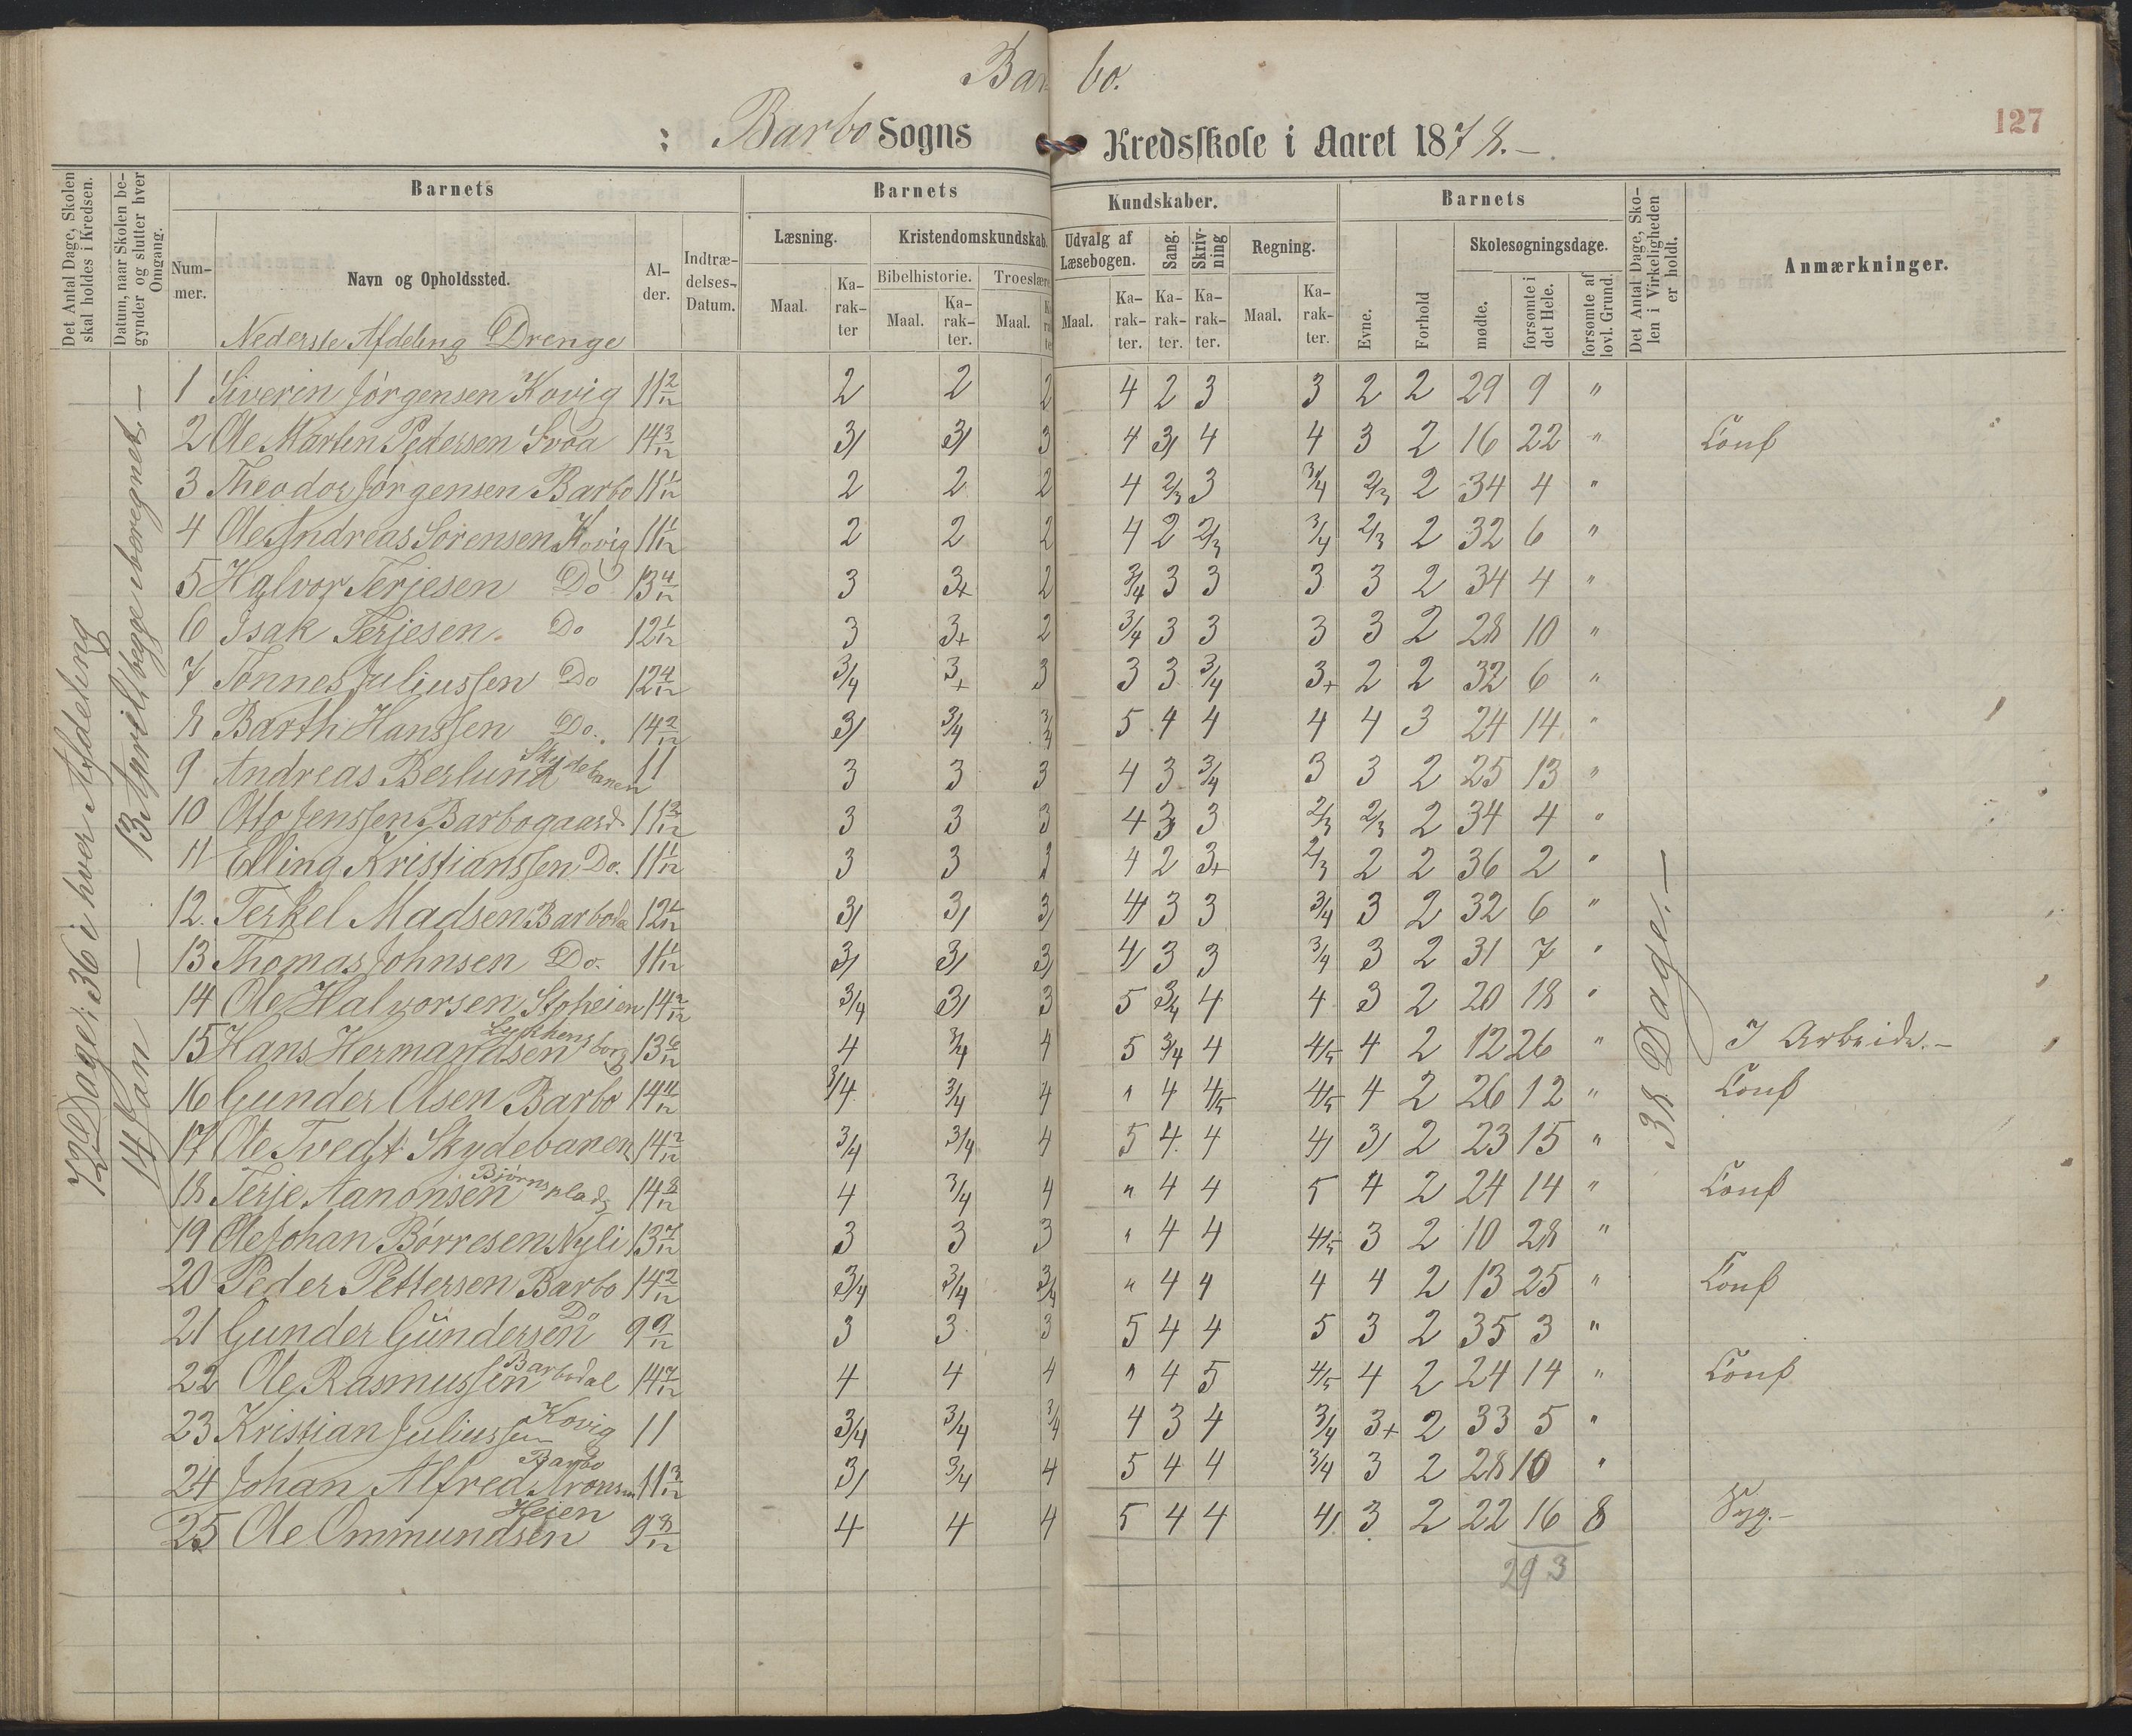 Barbo.
127
Barbo Sogns Kredsskole i Aaret 1878.-
Det Antal Dage, Skolen skal holdes i Kredsen.
Datum, naar Skolen begynder og slutter hver Omgang.
Barnets
Nummer.
Navn og Opholdssted.
Alder.
Indtrædelses-Datum.
Barnets Kundskaber.
Læsning.
Maal.
Karakter
Kristendomskundskab.
Bibelhistorie.
Maal.
Karakter.
Troeslære
Maal.
Udvalg af Læsebogen.
Maal.
Karakter.
Sang.
Karakter.
Skrivning
Karakter.
Regning.
Maal.
Karakter.
Barnets
Evne.
Forhold
Skolesøgningsdage.
mødte.
forsømte i det Hele.
forsømte af lovl. Grund.
Det Antal Dage, Skolen i Virkeligheden er holdt.
Anmærkninger.
72 Dage; 36 i hver Afdeling
14 Jan — 13 April begge iberegnet. —
38 Dage. —
Nederste Afdeling Drenge
1 Siverin Jørgensen Kovig 11 2/12 2 2 2 4 2 3 3 2 2 29 9 "
2 Ole Martin Pedersen Svoa 14 3/12 3/ 3/ 3 4 3/ 4 4 3 2 16 22 " Conf
3 Theodor Jørgensen Barbo 11 1/12 2 2 2 4 2/3 3 3/4 2/3 2 34 4 "
4 Ole Andreas Sørensen Kovig 11 1/12 2 2 2 4 2 2/3 3/4 2/3 2 32 6 "
5 Halvor Terjesen Do 13 4/12 3 3+ 2 3/4 3 3 3 3 2 34 4 "
6 Isak Terjesen. Do 12 1/12 3 3+ 2 3/4 3 3 3 3 2 28 10 "
7 Tønnes Juliussen Do 12 4/12 3/4 3+ 3 3 3 3/4 3+ 2 2 32 6 "
8 Barth Hanssen Do. 14 2/12 3/ 3/4 3/4 5 4 4 4 4 3 24 14 "
9 Andreas Berlund Skydebanen 11 3 3 3 4 3 3/4 3 3 2 25 13 "
10 Otto Jenssen Barbogaard 11 3/12 3 3 3 4 3 3 2/3 2/3 2 34 4 "
11 Elling Kristianssen Do. 11 1/12 3 3 3 4 2 3+ 2/3 2 2 36 2 "
12. Terkel Madsen Barbo 12 4/12 3/ 3/ 3/ 4/ 3 3 3/4 3 2 32 6 "
13 Thomas Johnsen Do. 11 1/12 3/ 3/ 3/ 4/ 3 3 3/4 3 2 31 7 "
14 Ole Halvorsen Stoheien 14 2/12 3/4 3/ 3 5 3/4 4 4 3 2 20 18 "
15 Hans Hermandsen Lykkensborg 13 6/12 4 3/4 4 5 3/4 4 4/5 4 2 12 26 " I Arbeide. -
16 Gunder Olsen Barbo 14 4/12 3/4 3/4 4 " 4 4/5 4/5 4 2 26 12 " Conf
17 Ole Tvedt Skydebanen 14 2/12 3/4 3/4 4 5 4 4 4/ 3/ 2 23 15 "
18 Terje Aanonsen Bjørnsplads 14 8/12 4 3/4 4 " 4 4 5 4 2 24 14 " Conf
19 Ole Johan Børresen Nyli 13 7/12 3 3 3 " 4 4 4/5 3 2 10 28 "
20 Peder Pettersen Barbo 14 2/12 3/4 3/4 3/4 " 4 4 4 4 2 13 25 " Conf
21 Gunder Gundersen Do 9 9/12 3 3 3 5 4 4 5 3 2 35 3 "
22 Ole Rasmussen Barbodal 14 7/12 4 4 4 " 4 5 4/5 4 2 24 14 " Conf
23 Kristian Juliussen Kovig 11 3/4 3/4 3/4 4 3 4 3/4 3+ 2 33 5 "
24 Johan Alfred Aronsen Barbo 11 3/12 3/ 3/4 4 5 4 4 3/4 3 2 28 10 "
25 Ole Ommundsen Heien 9 8/12 4 4 4 5 4 4 4/ 3 2 22 16 8 Syg. -
293